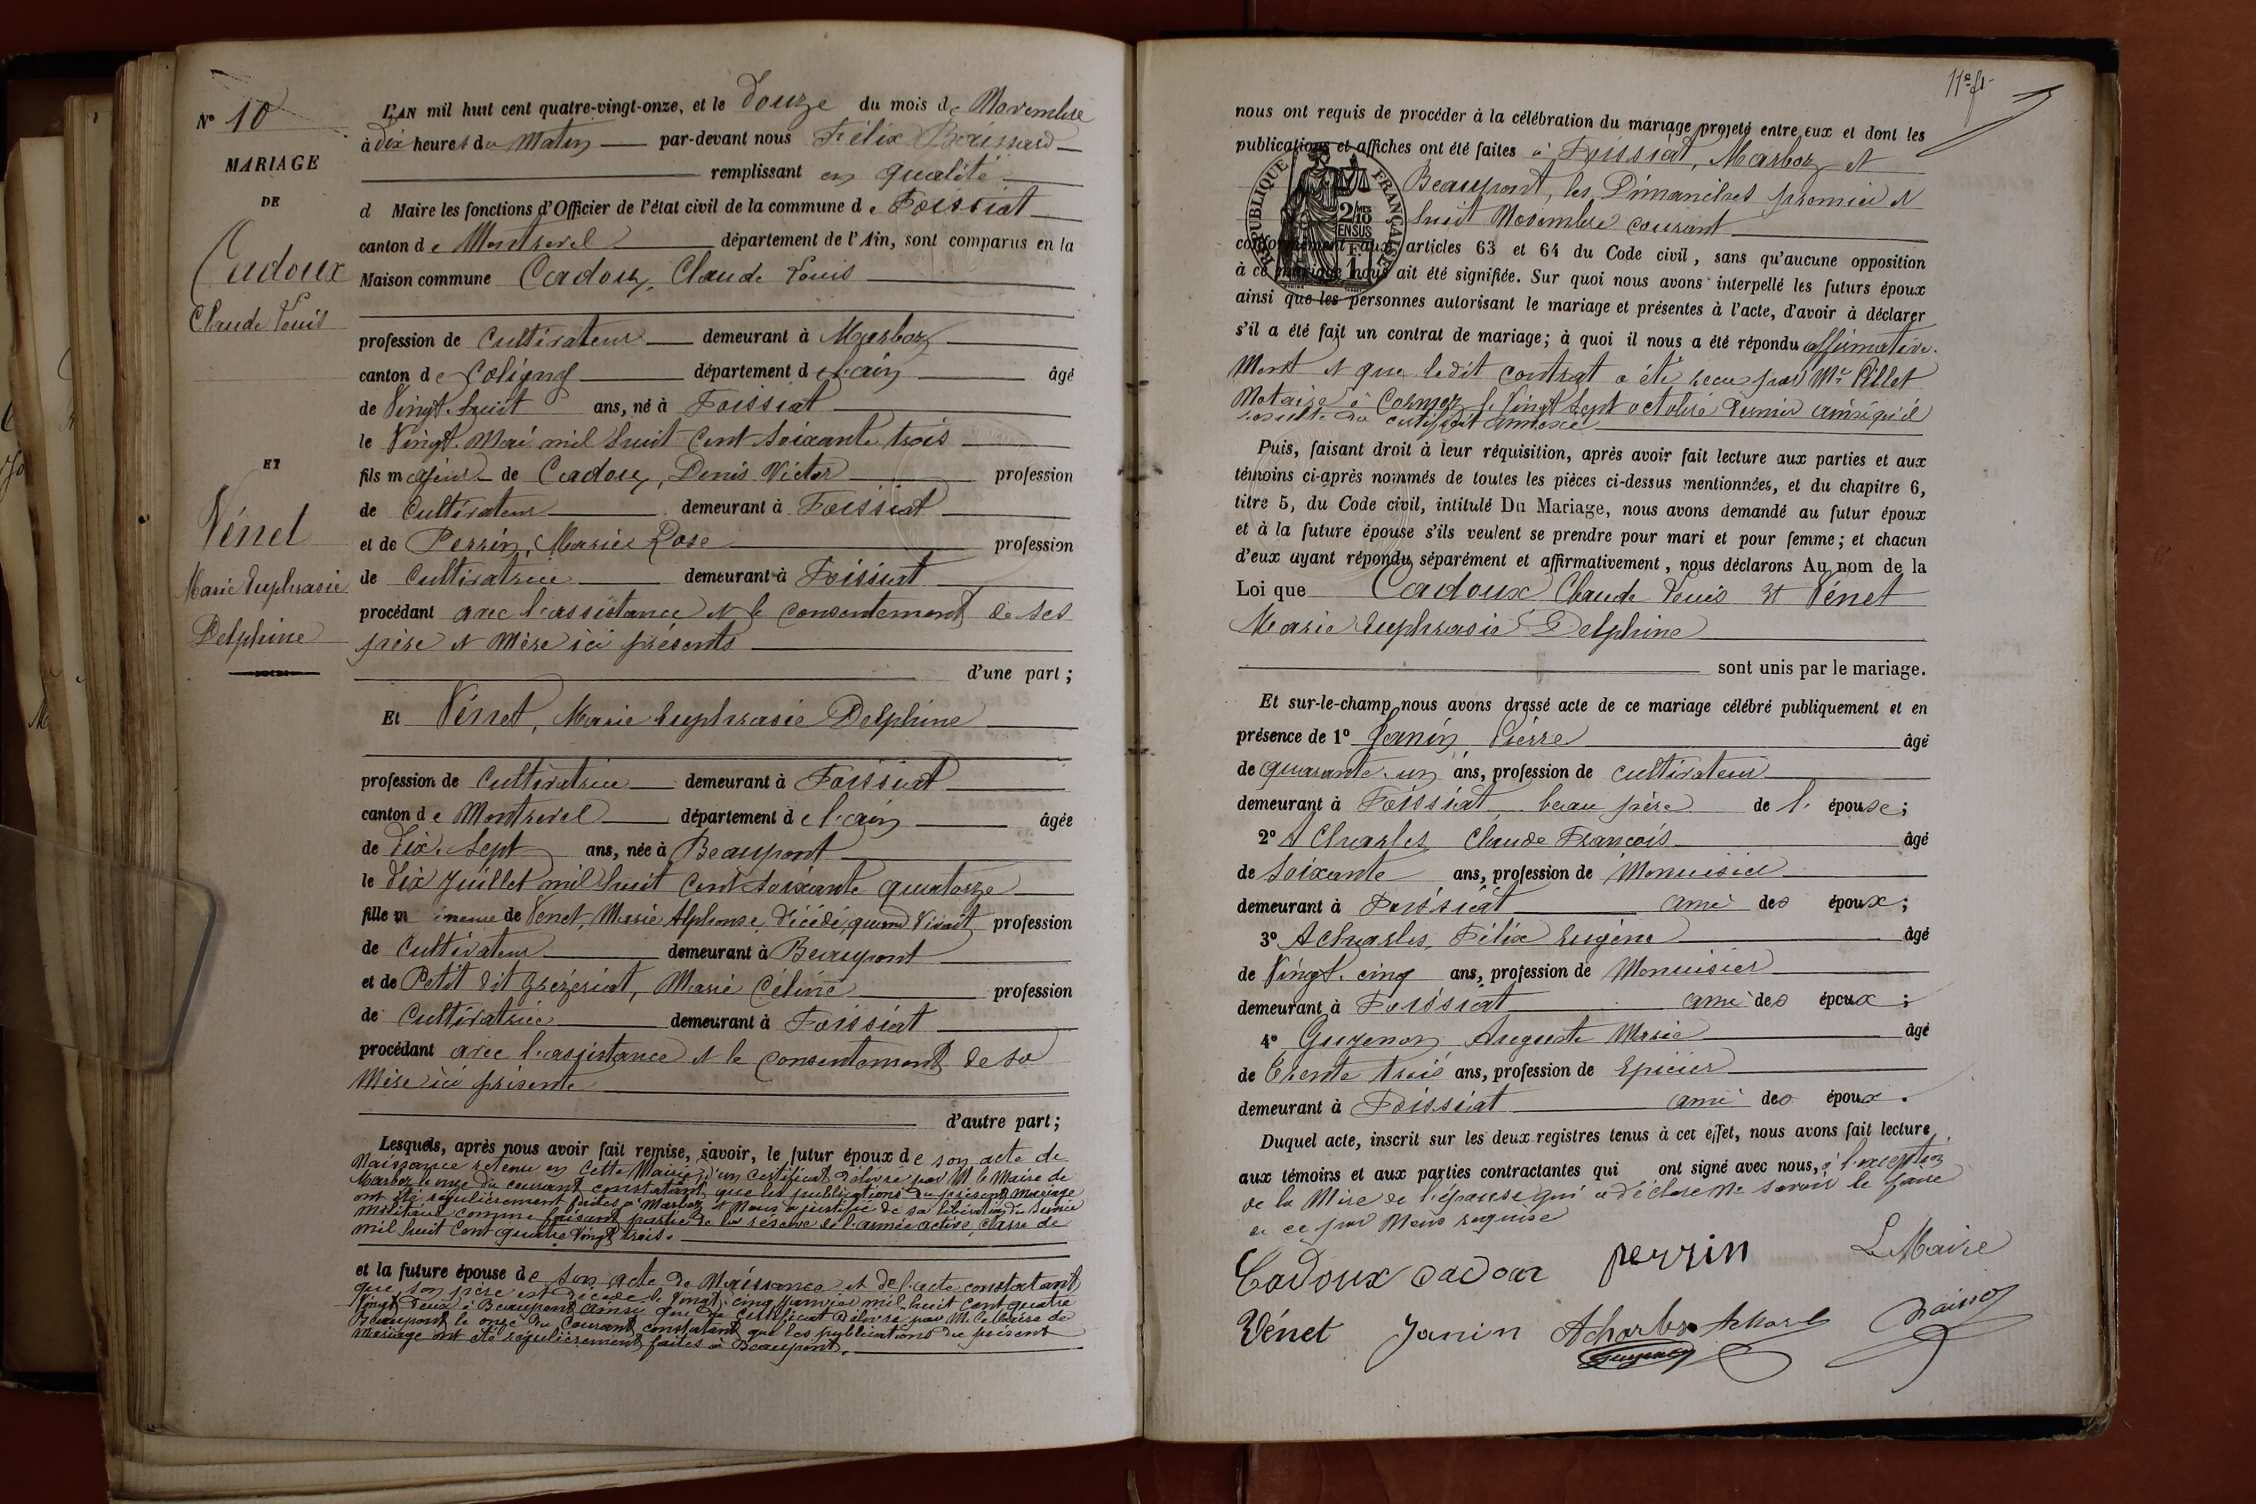 N° 10
MARIAGE
DE
Cadoux
Claude Louis
ET
Vénet
Marie Euphrasie
Delphine
L'AN mil huit cent quatre-vingt-onze, et le Douze du mois de Novembre
à Dix heures du Matin par-devant nous Félix
remplissant en qualité
d Maire les fonctions d'Officier de l'état civil de la commune de Foissiat
canton de Montrevel département de l'Ain, sont comparus en la
Maison commune Cadoux, Claude Louis
profession de Cultivateur demeurant à Marboz
canton de Coligny département de l'ain âgé
de Vingt-huit ans, né à Foissiat
le Vingt Mai mil huit Cent soixante trois
fils majeur de Cadoux, Denis Victor profession
de Cultivateur demeurant à Foissiat
et de Perrin, Marie Rose profession
de Cultivatrice demeurant à Foissiat
procédant avec l'assistance et le consentement de ses
père et mère ici présents
d'une part ;
Et Vénet, Marie Euphrasie Delphine
profession de Cultivatrice demeurant à Foissiat
canton de Montrevel département de l'ain âgée
de Dix-Sept ans, née à Beaupont
le Dix Juillet mil huit Cent soixante quatorze
fille mineure de Venet, Marie Alphonse, Décédé, quand Vivait profession
de Cultivateur demeurant à Beaupont
et de Petit dit Grézériat, Marie Céline profession
de Cultivatrice demeurant à Foissiat
procédant avec l'assistance et le consentement de sa
Mère ici présente
d'autre part ;
Lesquels, après nous avoir fait remise, savoir, le futur époux de son acte de
Naissance retenu en cette Mairie, d'un certificat délivré par M le Maire de
Marboz le onze du courant constatant que les publications du présent mariage
ont été régulièrement faites à Marboz et Nous a justifié de sa libération du service
militaire comme faisant partie de la réserve de l'armée active, classe de
mil huit Cent quatre Vingt trois.
et la future épouse de son acte de Naissance et de l'acte constatant
que son père est décédé le Vingt-cinq Janvier mil huit Cent quatre
Vingt Deux à Beaupont ainsi que du certificat délivré par M. le Maire de
Beaupont le onze du Courant constatant que les publications du présent
mariage ont été régulièrement faites à Beaupont.
11e ft
nous ont requis de procéder à la célébration du mariage projeté entre eux et dont les
publications et affiches ont été faites à Foissiat, Marboz et
Beaupont, les Dimanches premier et
huit Novembre courant
conformément aux articles 63 et 64 du Code civil, sans qu'aucune opposition
à ce mariage nous ait été signifiée. Sur quoi nous avons interpellé les futurs époux
ainsi que les personnes autorisant le mariage et présentes à l'acte, d'avoir à déclarer
s'il a été fait un contrat de mariage ; à quoi il nous a été répondu affirmative-
Ment et que ledit contrat a été recu par Me Pillet
Notaire à Cormoz le Vingt Sept octobre Dernier ainsi qu'il
resulte du certificat annexé
RÉPUBLIQUE FRANÇAISE
2/10MES
EN SUS
1F.
Puis, faisant droit à leur réquisition, après avoir fait lecture aux parties et aux
témoins ci-après nommés de toutes les pièces ci-dessus mentionnées, et du chapitre 6,
titre 5, du Code civil, intitulé Du Mariage, nous avons demandé au futur époux
et à la future épouse s'ils veulent se prendre pour mari et pour femme ; et chacun
d'eux ayant répondu séparément et affirmativement, nous déclarons Au nom de la
Loi que Cadoux Claude Louis et Vénet
Marie Euphrasie Delphine
sont unis par le mariage.
Et sur-le-champ nous avons dressé acte de ce mariage célébré publiquement et en
présence de 1° Janin Pierre âgé
de quarante-un ans, profession de cultivateur
demeurant à Foissiat, beau père de l' épouse ;
2° Acharles Claude François âgé
de Soixante ans, profession de Menuisier
demeurant à Foissiat ami des époux ;
3° Acharles, Félix Eugène âgé
de Vingt-cinq ans, profession de Menuisier
demeurant à Foissiat ami des époux ;
4° Guyenon Auguste Marie âgé
de Trente trois ans, profession de Epicier
demeurant à Foissiat ami des époux.
Duquel acte, inscrit sur les deux registres tenus à cet effet, nous avons fait lecture
aux témoins et aux parties contractantes qui ont signé avec nous, à l'exception
de la Mère de l'épouse qui a déclaré ne savoir le faire
de ce par Nous requise
Cadoux cadoux perrin Le Maire
Vénet Janin Acharles